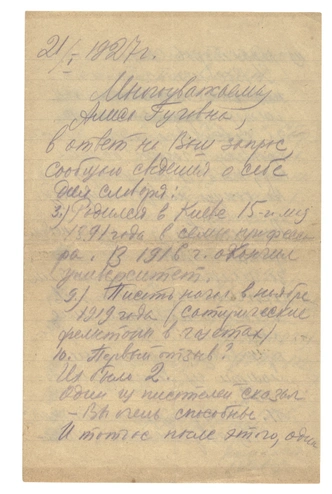 21/I 1927 г.
Многоуважаемая
Гуговна,
в ответ на Ваш запрос,
сообщаю сведения о себе
для словаря:
3.) Родился в Киеве 15-го мая
1891 года в семье профессо-
ра. В 1916 г. окончил
университет.
9.) Писать начал в ноябре
1919 года (сатирические
фельетоны в газетах)
10. Первый отзыв?
Их было 2.
Один из писателей сказал
– Вы очень способны
И тотчас после этого, один